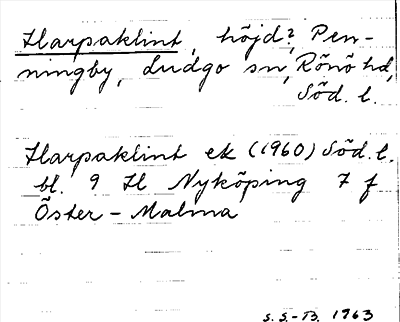 Harpaklint, höjd?, Pen-
ningby, Ludgo sn, Rönö hd,
Söd. l.
Harpaklint ek (1960) Söd. l.
bl. 9 H Nyköping 7 f
Öster-Malma
S.S.-B. 1963